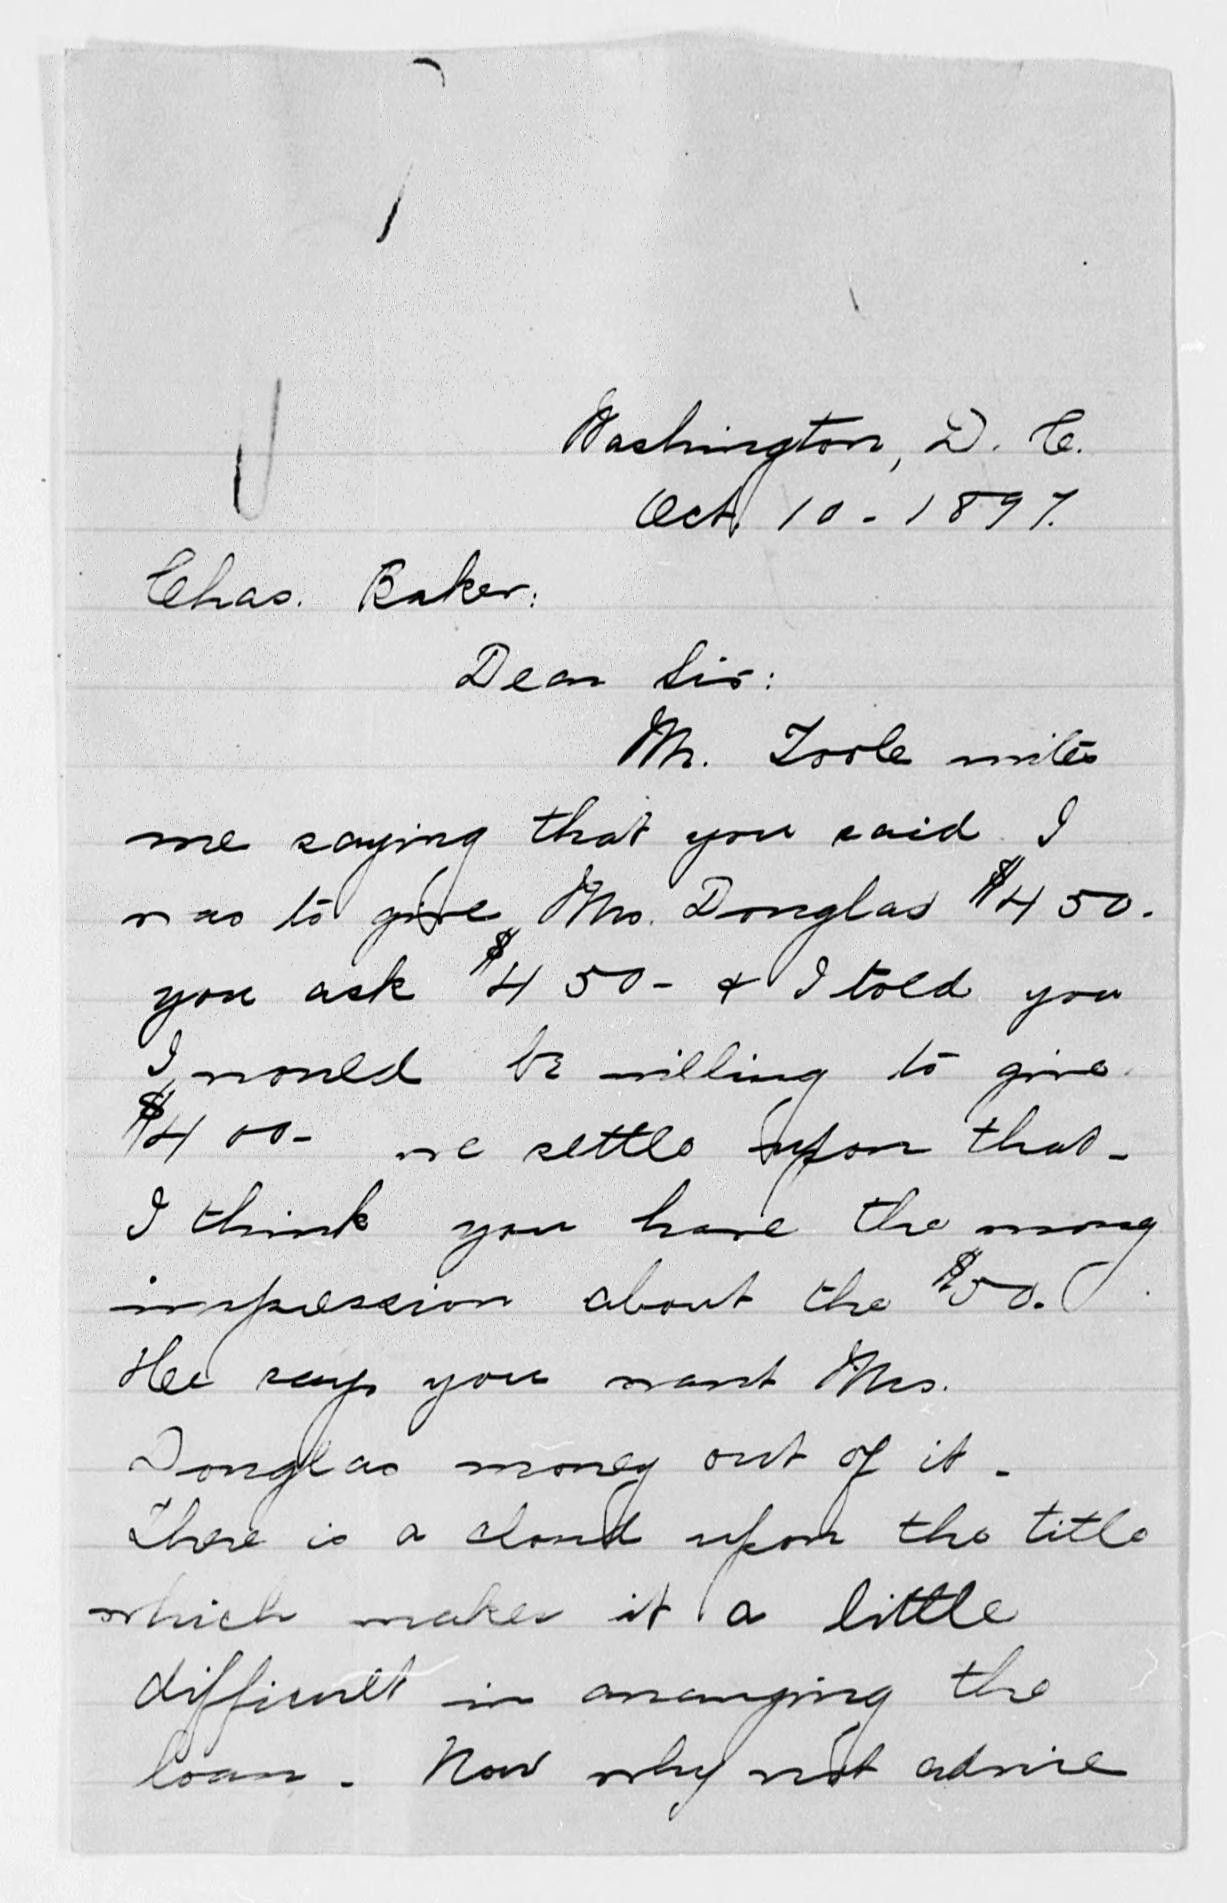 Washington, D. C.
Oct. 10 - 1897.
Chas. Baker:
Dear Sir:
Mr. Toole writes
me saying that you said I
was to give Mrs. Douglas $450.
you ask $450 - & I told you
I would be willing to give
$400 - we settle upon that -
I think you have the wrong
impression about the $50.
He says you want Mrs.
Douglas money out of it -
There is a cloud upon the title
which makes it a little
difficult in arranging the
loan - Now why not advise